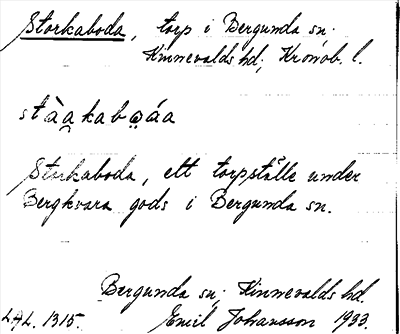 Storkaboda, torp i Bergunda sn.
Kinnevalds hd; Kronob. l.
stàa̰kabo̤áa
Storkaboda, ett torpställe under
Bergkvara gods i Bergunda sn.
Bergunda sn; Kinnevalds hd.
LAL. 1315. Emil Johansson 1933.